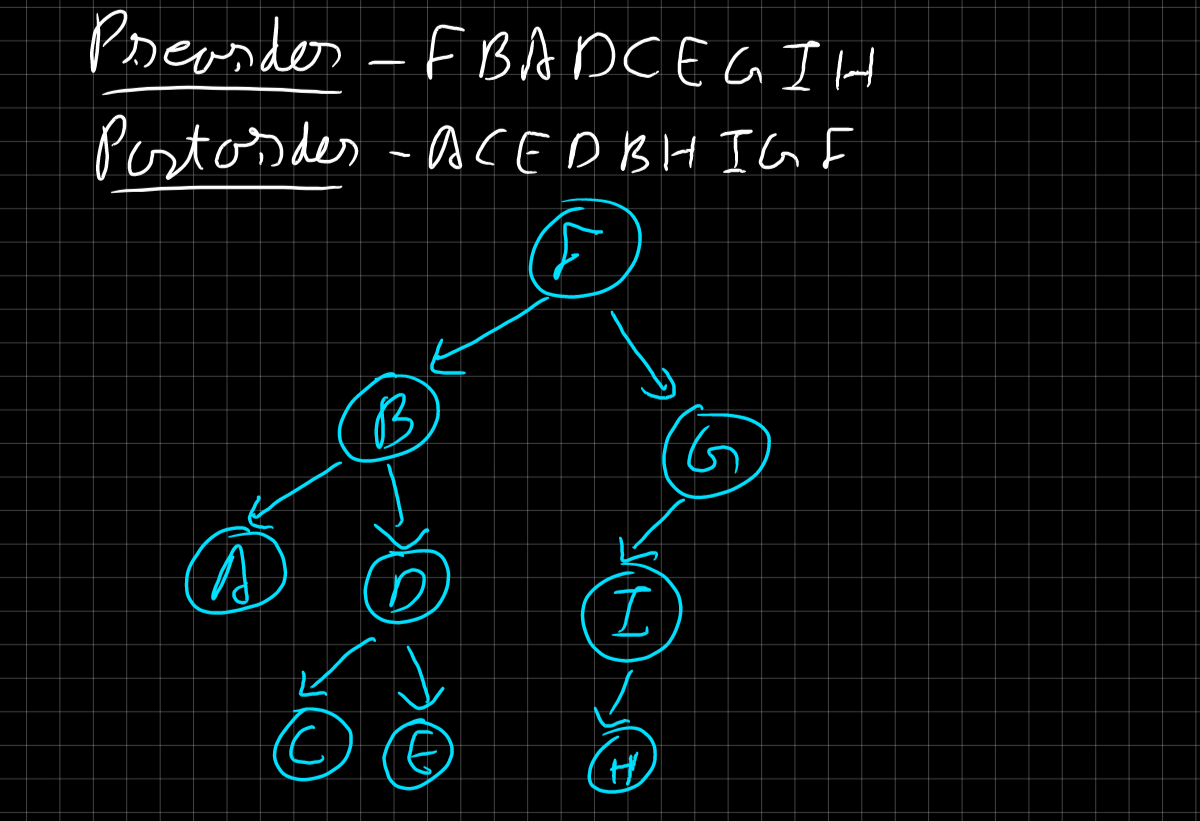 Preorder - F B A D C E G I H
Postorder - A C E D B H I G F
F
B
G
A
D
I
C
E
H